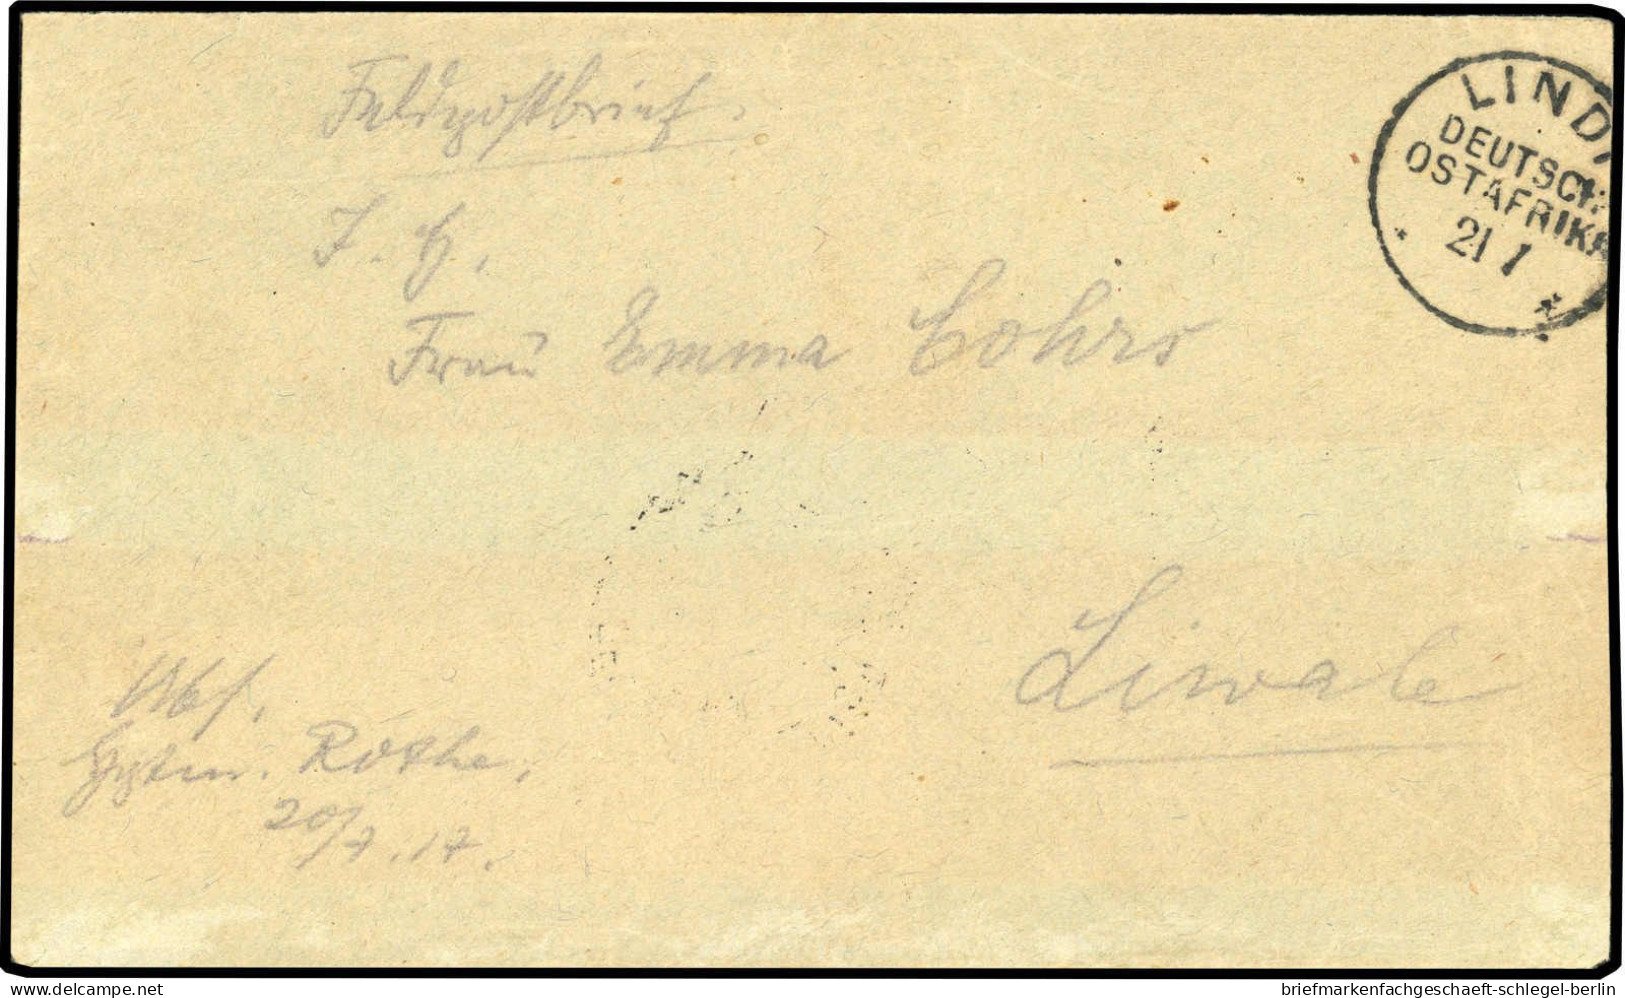 Feldpostbrief.
LINDI
DEUTSCH-
OSTAFRIKA
21 7
* *
I. H.
Frau Emma Cohrs
Liwale
Abs.
Hptm. Rothe.
20/7.17.
delcampe.net
briefmarkenfachgeschaeft-schlegel-berlin